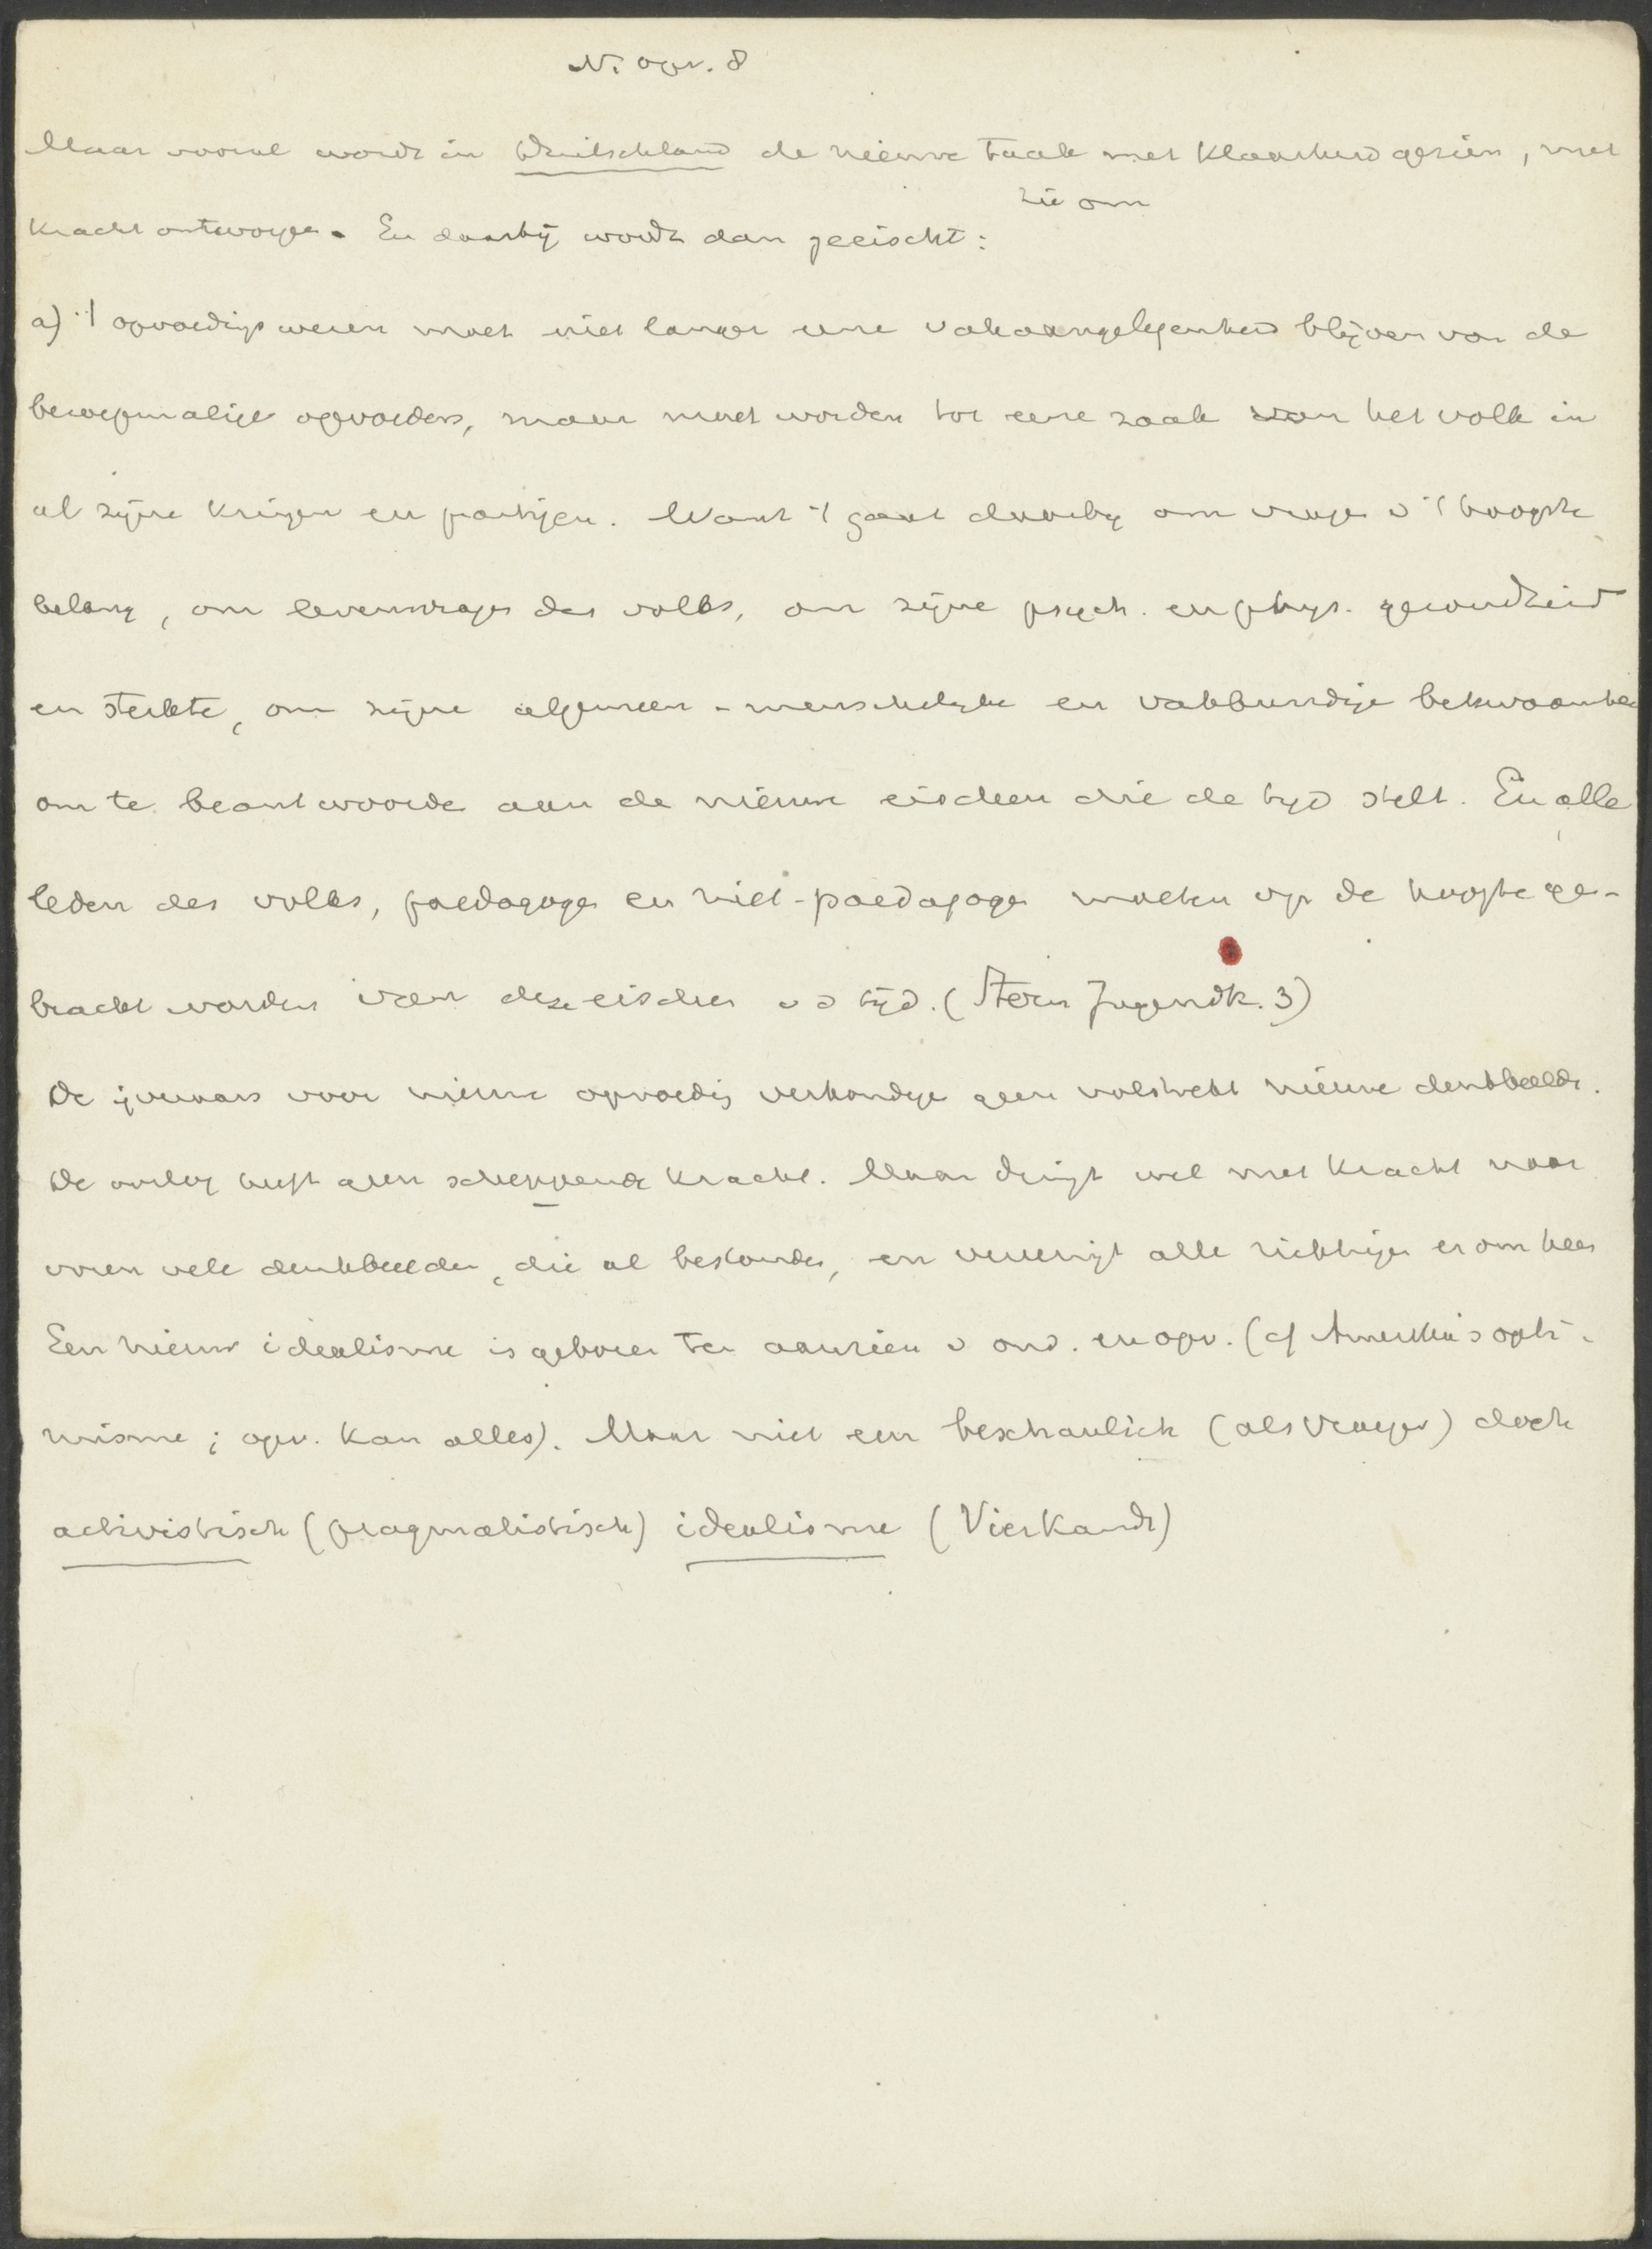 N. opv. 8
Maar vooral wordt in Duitschland de nieuwe taak met klaarheid gezien, met
zie om
kracht ontworpen. En daarbij wordt dan geeischt:
a) 't opvoedingswezen moet niet langer eene vakaangelegenheid blijven van de
beroepmatige opvoeders, maar moet worden tot eene zaak van het volk in
al zijne kringen en partijen. Want 't gaat daarbij om vragen v 't hoogste
belang, om levensvragen des volks, om zijne psych. en phys. gezondheid
en sterkte, om zijne algemeen-menschelijke en vakkundige bekwaamheid
om te beantwoorden aan de nieuwe eischen die de tijd stelt. En alle
leden des volks, paedagogen en niet-paedagogen moeten op de hoogte ge-
bracht worden van deze eischen v d tijd. (Stern Jugendk. 3)
De ijveraars voor nieuwe opvoeding verkondigen geen volstrekt nieuwe denkbeelden.
De oorlog heeft geen scheppende kracht. Maar dringt wel met kracht naar
voren vele denkbeelden, die al bestonden, en vereenigt alle richtingen er om heen
Een nieuw idealisme is geboren ten aanzien v ond. en opv. (cf Amerika's opti-
misme; opv. kan alles). Maar niet een beschaulich (als vroeger) doch
activistisch (pragmatistisch) idealisme (Vierkandt)